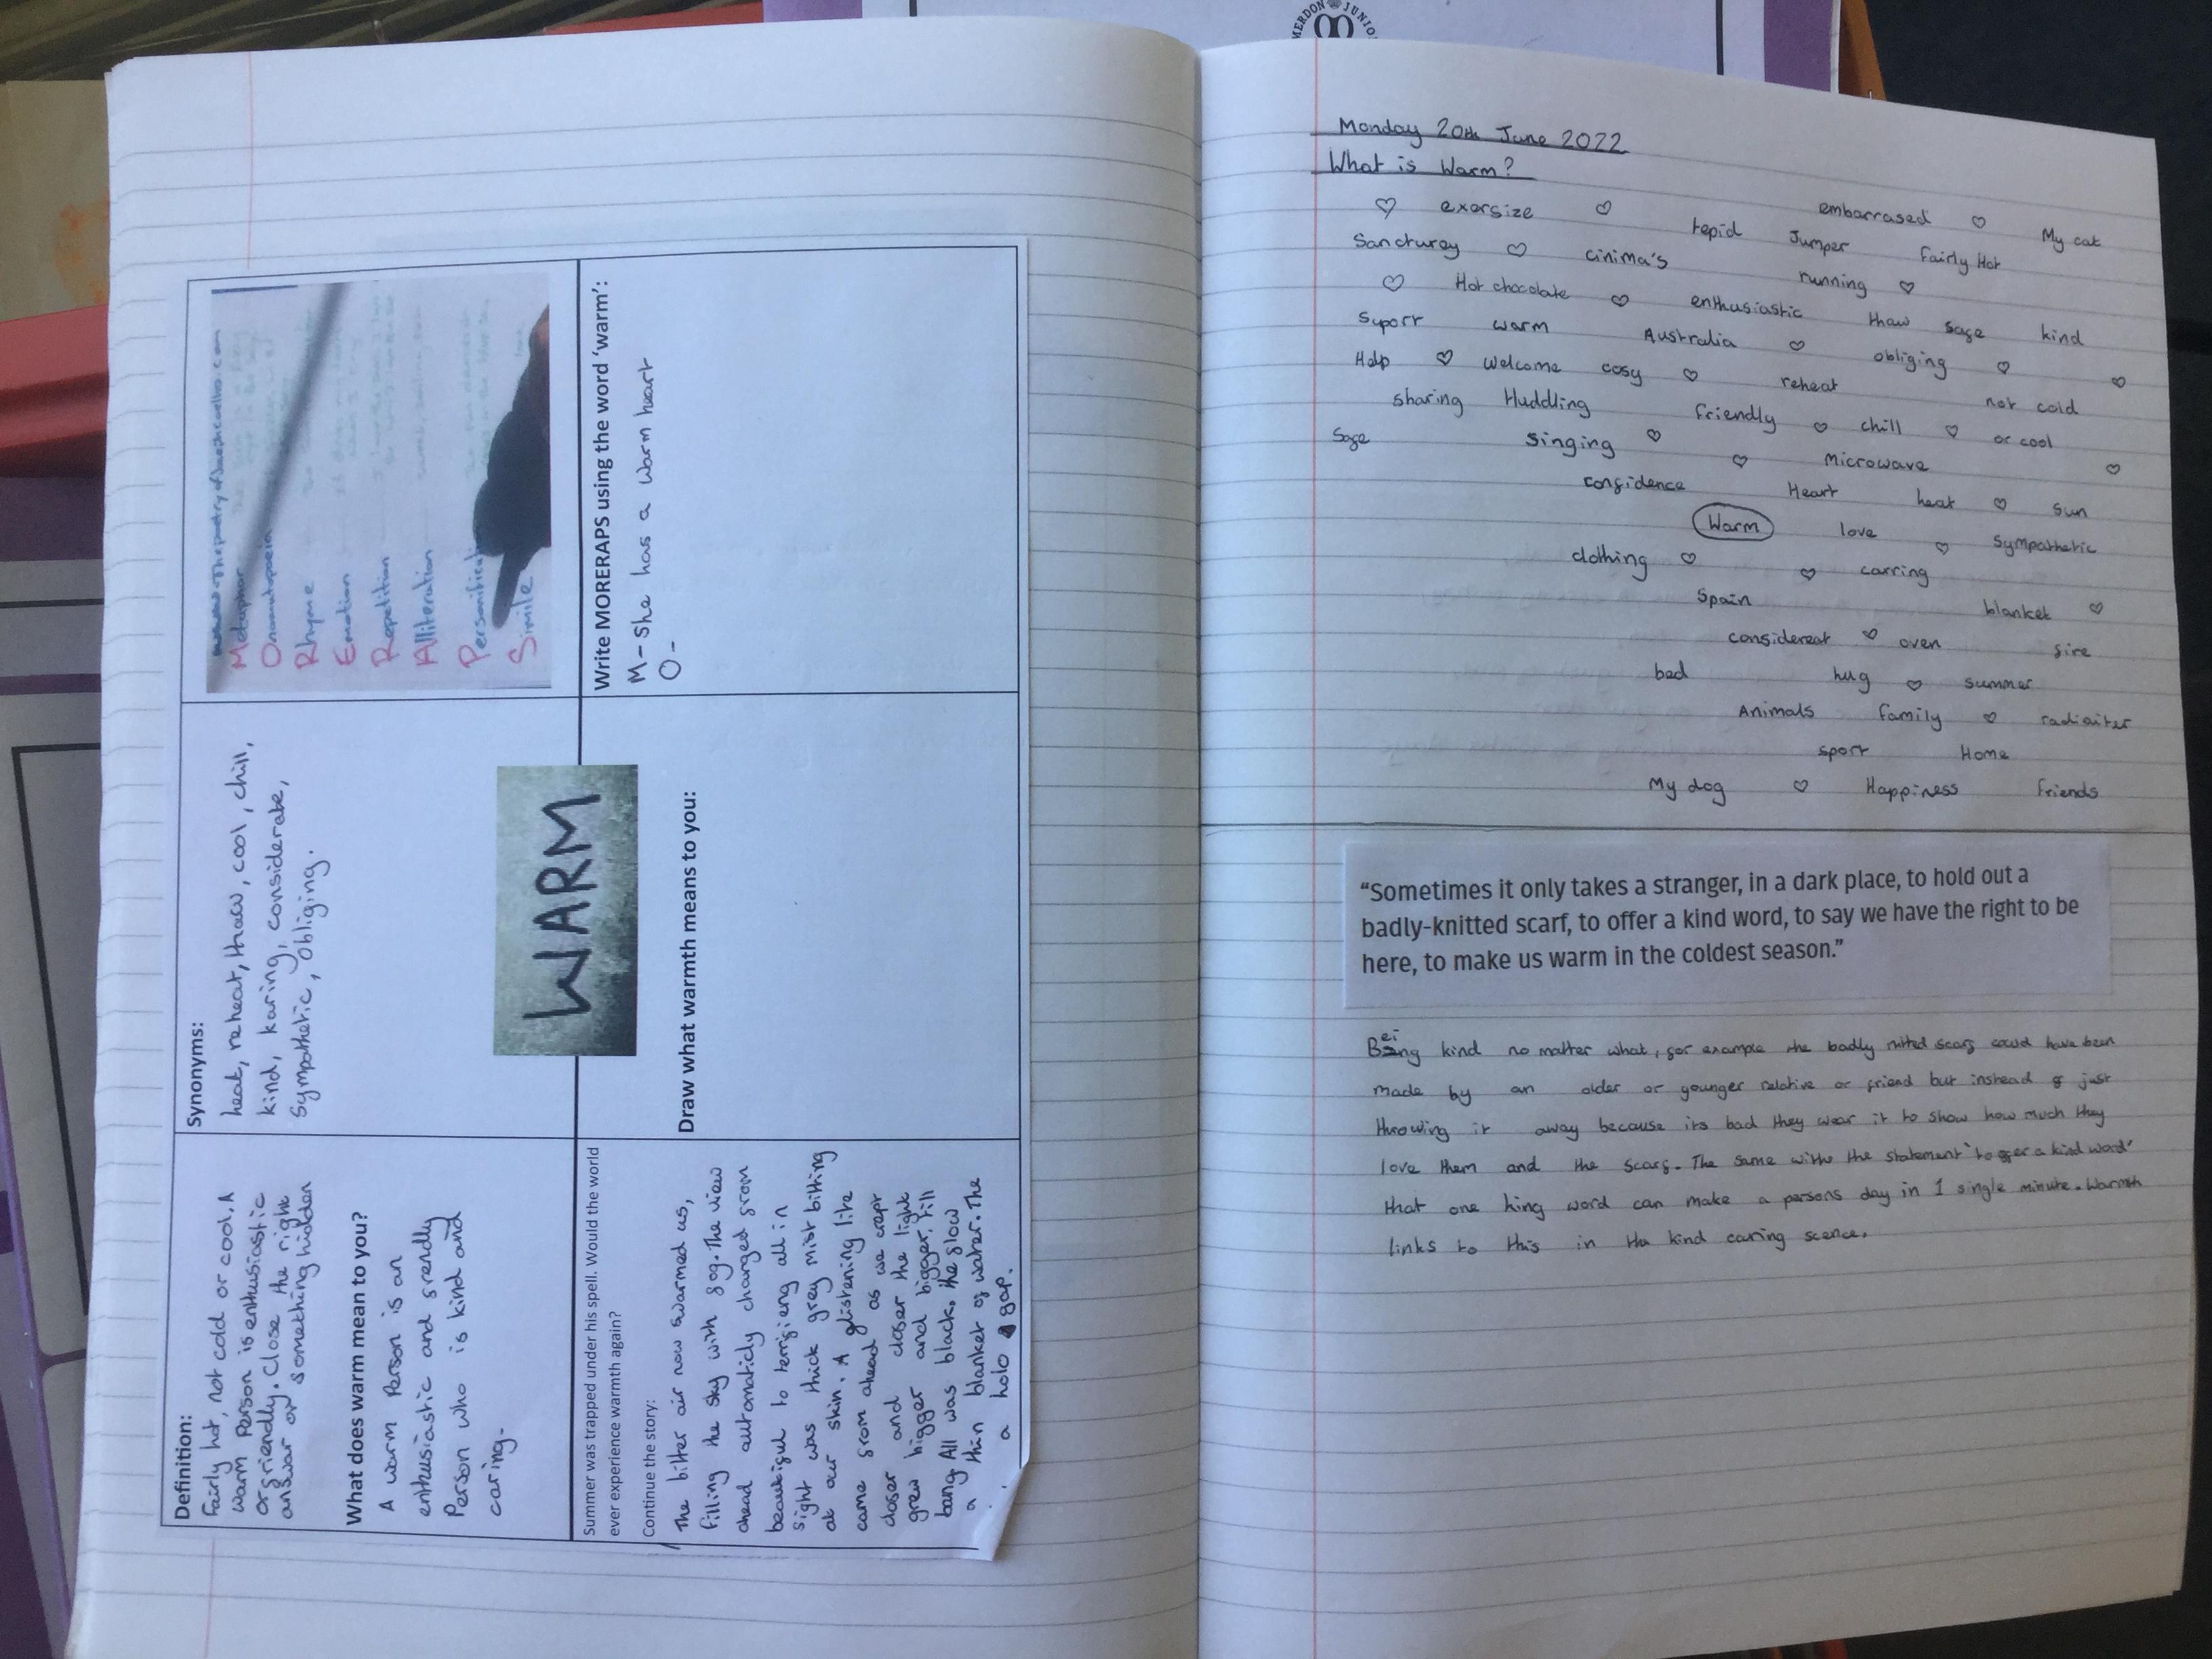 MERDON JUNIO
Definition:
Fairly hot, not cold or cool. A
warm Person is enthusiastic
or friendly. Close the right
answar or something hidden
What does warm mean to you?
A warm Person is an
enthusiastic and frendly
Person who is kind and
caring.
Synonyms:
heat, reheat, thaw, cool, chill,
kind, karing, considerate,
Sympathetic, Obliging.
Metaphor
Onomatopoeia
Rhyme
Emotion
Repetition
Alliteration
Personificati
Simile
WARM
Summer was trapped under his spell. Would the world
ever experience warmth again?
Continue the story:
The bitter air now swarmed us,
filling the sky with fog. The view
ahead automaticly changed from
beautiful to terrifieng all in
sight was thick grey mist bitting
at our skin. A glistening like
came from ahead as we crept
closer and closer the light
grew bigger and bigger, till
bang All was black. the slow
a thin blanket of water. The
a holo gap.
Draw what warmth means to you:
Write MORERAPS using the word 'warm':
M - She has a warm heart
O -
Monday 20th June 2022
What is Warm?
♡ exersize ♡ embarrased ♡ My cat
tepid Jumper Fairly Hot
Sancturey ♡ cinima's running ♡
♡ Hot chocolate ♡ enthusiastic thaw safe kind
Suport warm Australia ♡ obliging ♡ ♡
Help ♡ welcome cosy ♡ reheat not cold
sharing Huddling friendly ♡ chill ♡ or cool
Safe singing ♡ ♡ Microwave ♡
confidence Heart heat ♡ sun
Warm love ♡ Sympathetic
clothing ♡ ♡ carring
Spain blanket ♡
considereat ♡ oven fire
bed hug ♡ summer
Animals family ♡ radiaiter
sport Home
My dog ♡ Happiness friends
“Sometimes it only takes a stranger, in a dark place, to hold out a
badly-knitted scarf, to offer a kind word, to say we have the right to be
here, to make us warm in the coldest season.”
Being kind no matter what, for example the badly nitted scarf could have been
made by an older or younger relative or friend but instead of just
throwing it away because its bad they wear it to show how much they
love them and the scarf. The same withe the statement 'to offer a kind word'
that one king word can make a persons day in 1 single minute. Warmth
links to this in the kind caring scence.